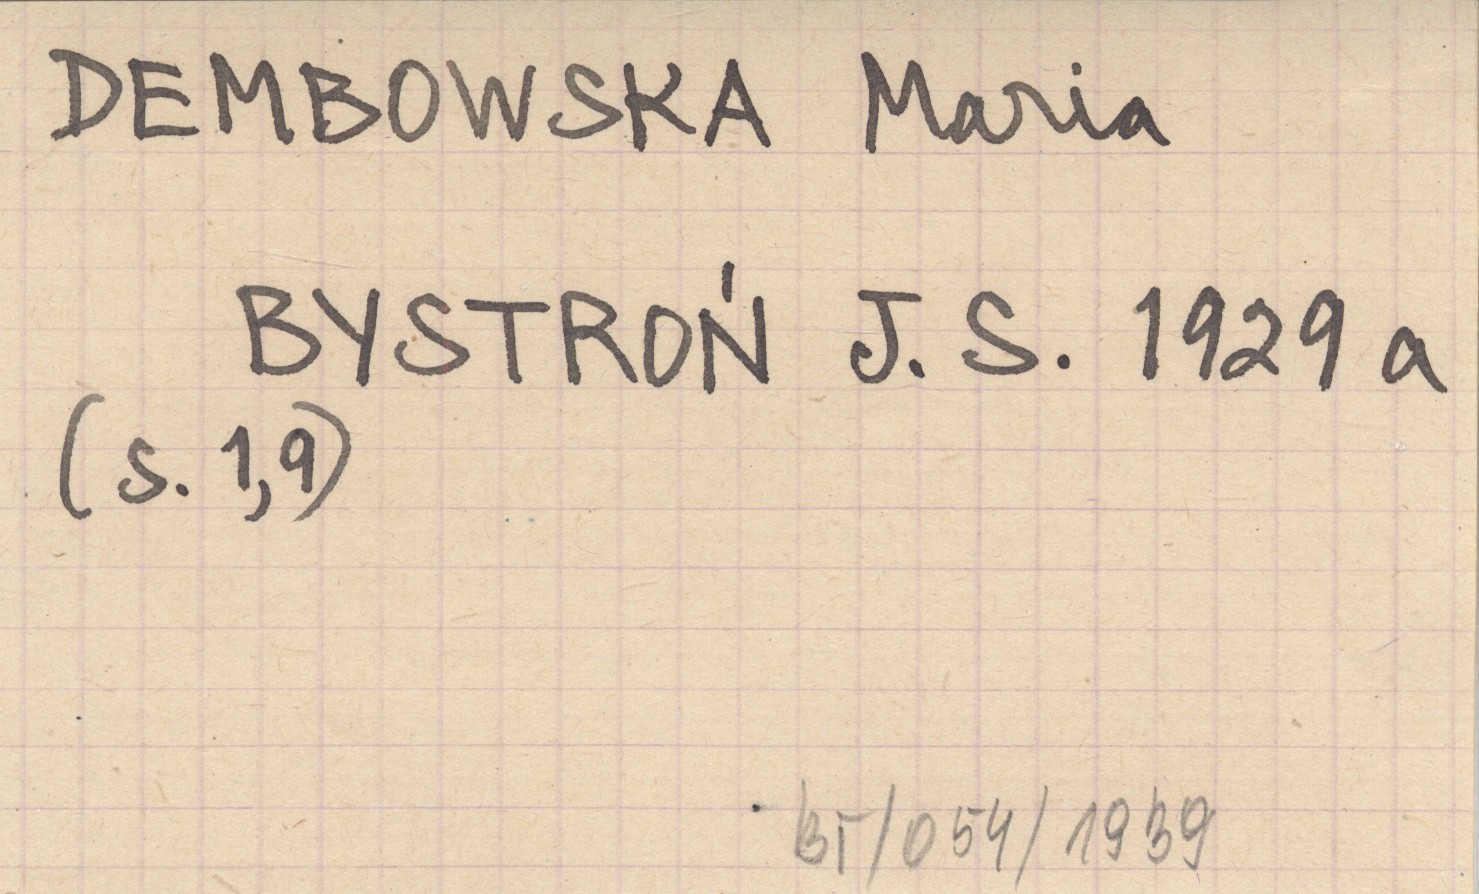 DEMBOWSKA Maria
BYSTROŃ J. S. 1929 a
(s. 1,9)
BT/054/1939